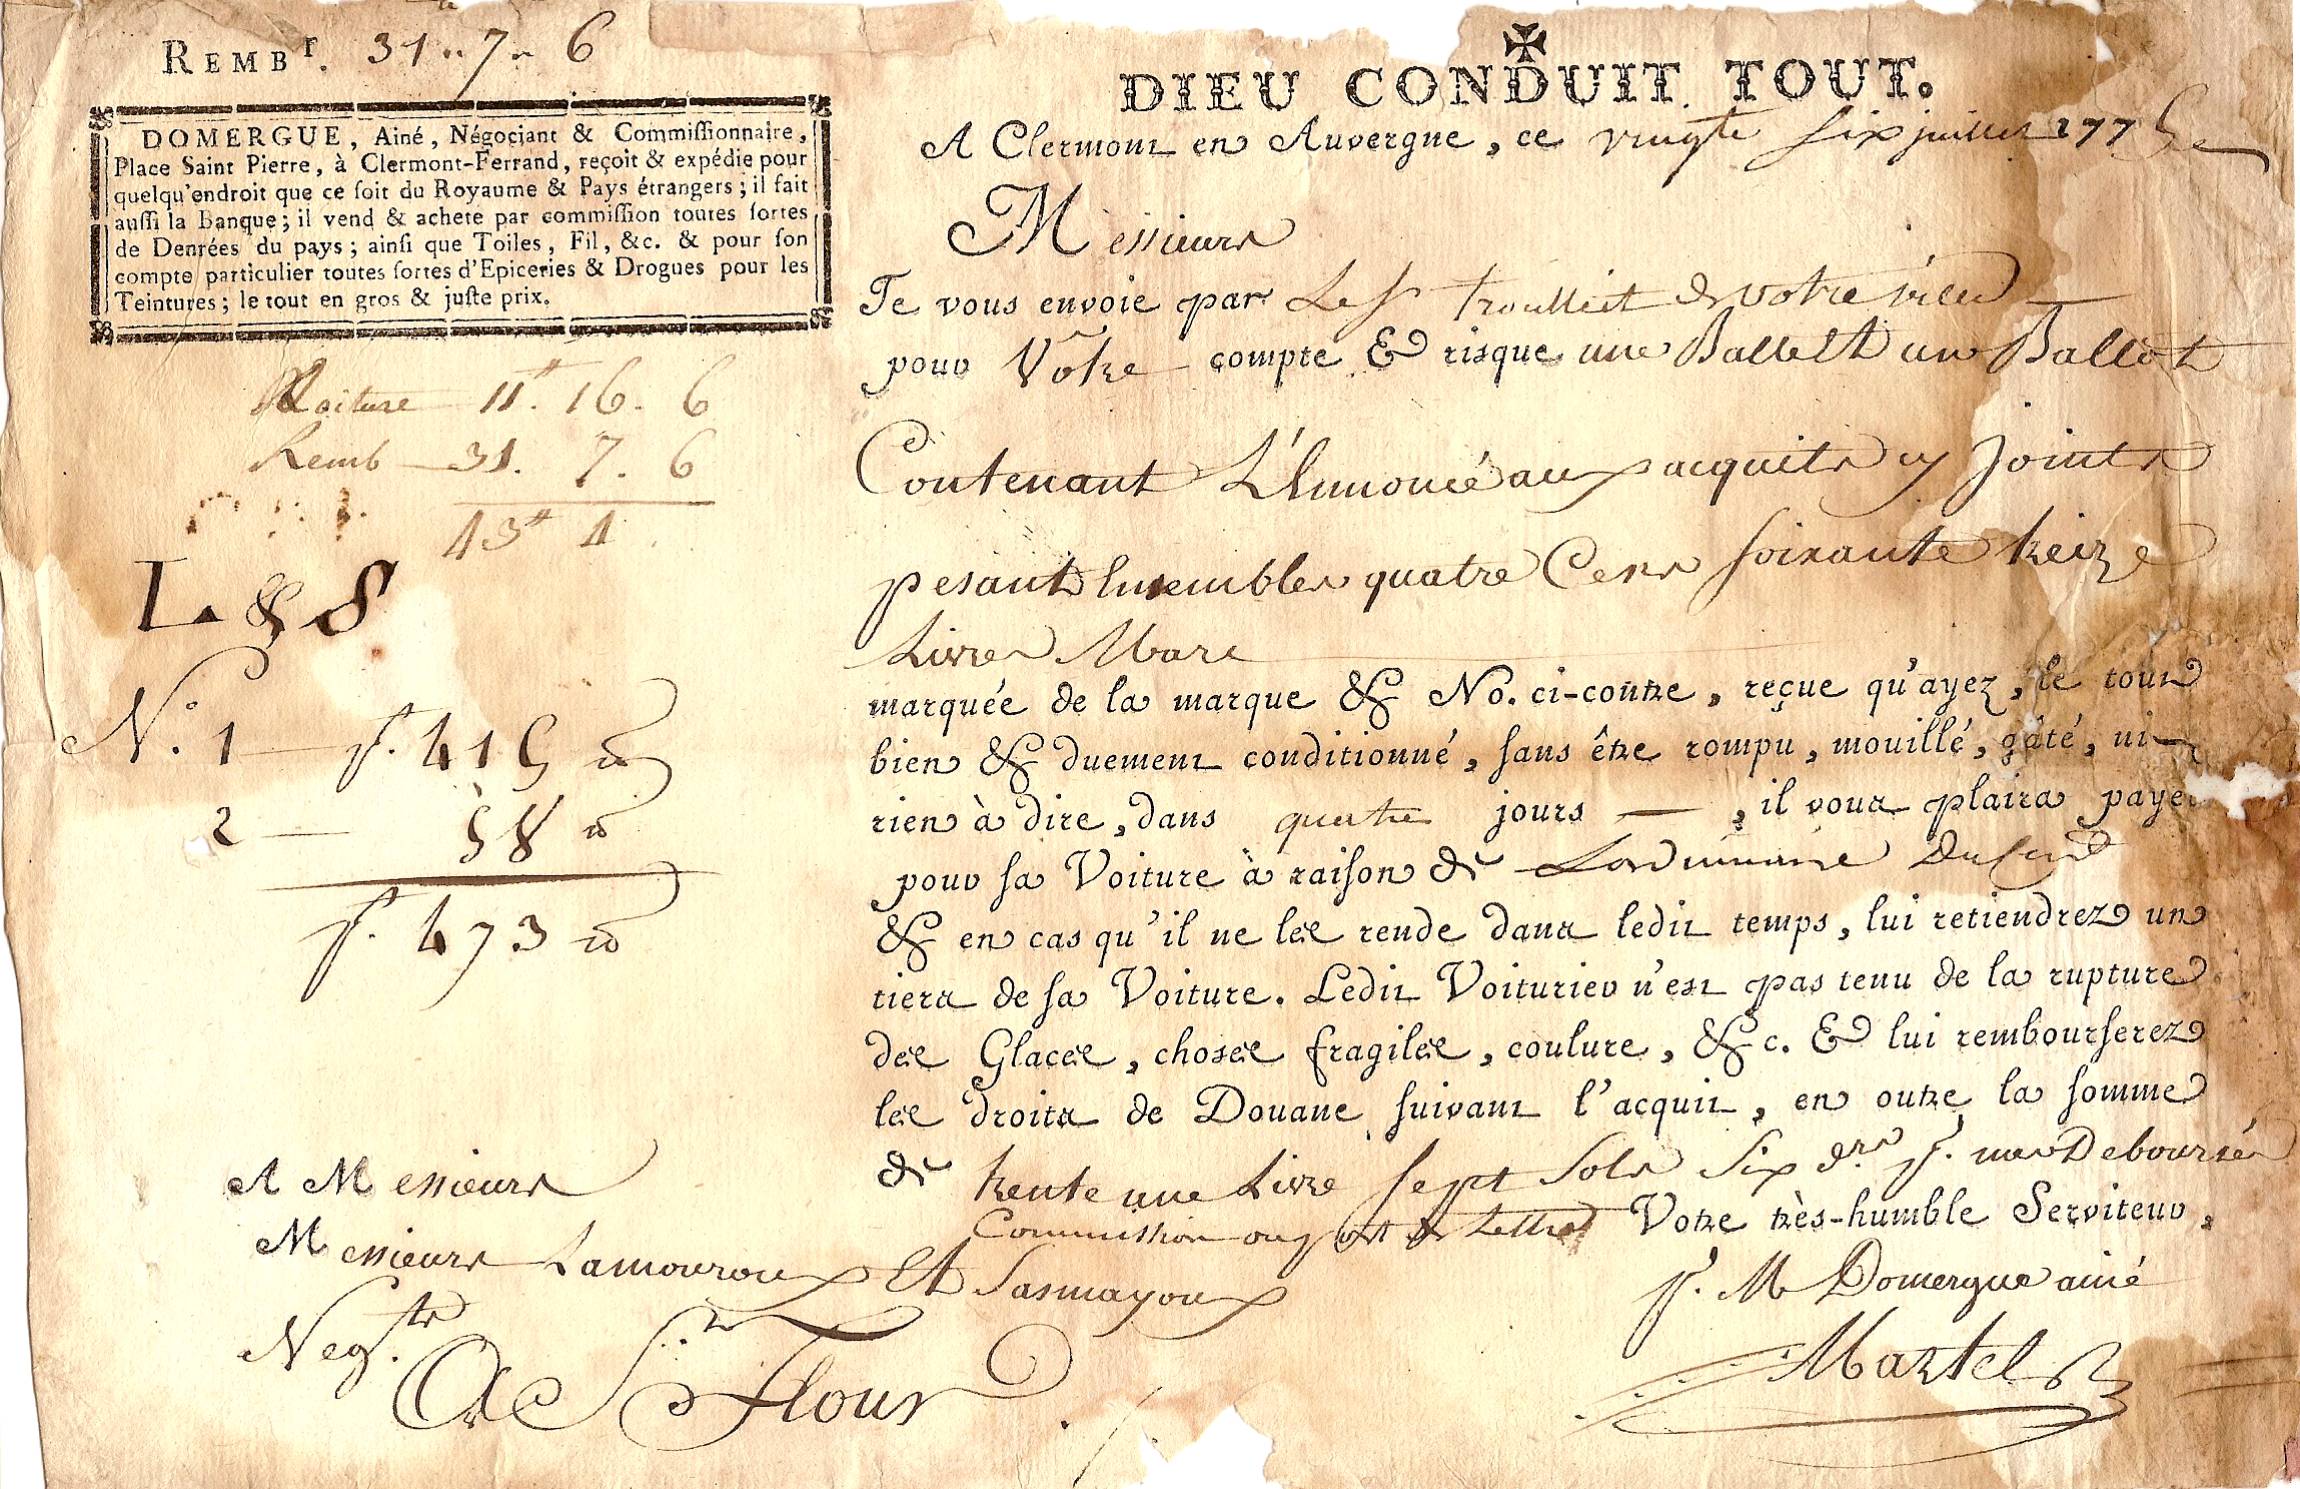 REMBr. 31.. 7.. 6
DOMERGUE, Ainé, Négociant & Commiſſionnaire,
Place Saint Pierre, à Clermont-Ferrand, reçoit & expédie pour
quelqu'endroit que ce ſoit du Royaume & Pays étrangers ; il fait
auſſi la Banque ; il vend & achete par commiſſion toutes ſortes
de Denrées du pays ; ainſi que Toiles, Fil, &c. & pour ſon
compte particulier toutes ſortes d'Epiceries & Drogues pour les
Teintures ; le tout en gros & juſte prix.
Voiture 11. 16. 6
Remb 31. 7. 6
43 4
L & S
N.o 1 p. 415
2 58
p. 473
DIEU CONDUIT TOUT.
A Clermont en Auvergne, ce vingte ſix juillet 1775
Messieurs
Je vous envoie par Le Sr Troulliet de votre ville
pour Votre compte & risque une Balle Et un Ballot
Contenant L'Ennoncé aux acquits cy Joints
pesant Ensembles quatre Cens ſoixante treize
Livres Marc
marquée de la marque & No. ci-contre, reçue qu'ayez, le tout
bien & duement conditionné, ſans être rompu, mouillé, gâté, ni
rien à dire, dans quatre jours, il vous plaira payer
pour ſa Voiture à raiſon de Lordinnaire
& en cas qu'il ne les rende dans ledit temps, lui retiendrez un
tiers de ſa Voiture. Ledit Voiturier n'est pas tenu de la rupture
des Glaces, choses fragiles, coulure, &c. & lui rembourſerez
les droits de Douane ſuivant l'acquit, en outre la ſomme
de trente une Livre ſept Sols Six drs pr. mes Deboursés
Commission ou port de Lettres Votre très-humble Serviteur,
pr. M Domergue ainé
Martel
A Messieurs
Messieurs Lamouroux Et Sasmayoux
Negts
A St Flour